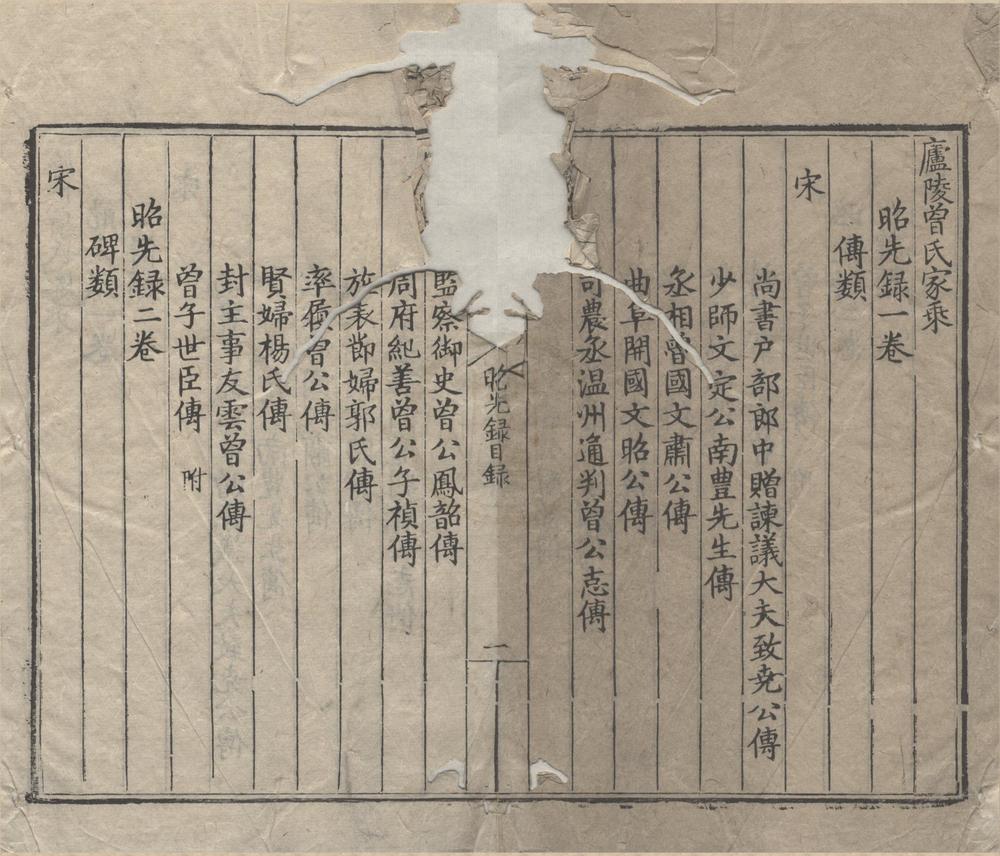 廬陵曾氏家乘
昭先録一卷
傳類
宋
尚書户部郎中贈諫議大夫致堯公傳
少師文定公南豊先生傳
丞相曾國文肅公傳
曲阜開國文昭公傳
司農丞温州通判曾公志傳
昭先録目録
一
監察御史曾公鳳韶傳
周府紀善曾公子禎傳
旌表節婦郭氏傳
率履曾公傳
賢婦楊氏傳
封主事友雲曾公傳
曾子世臣傳 附
昭先録二卷
碑類
宋